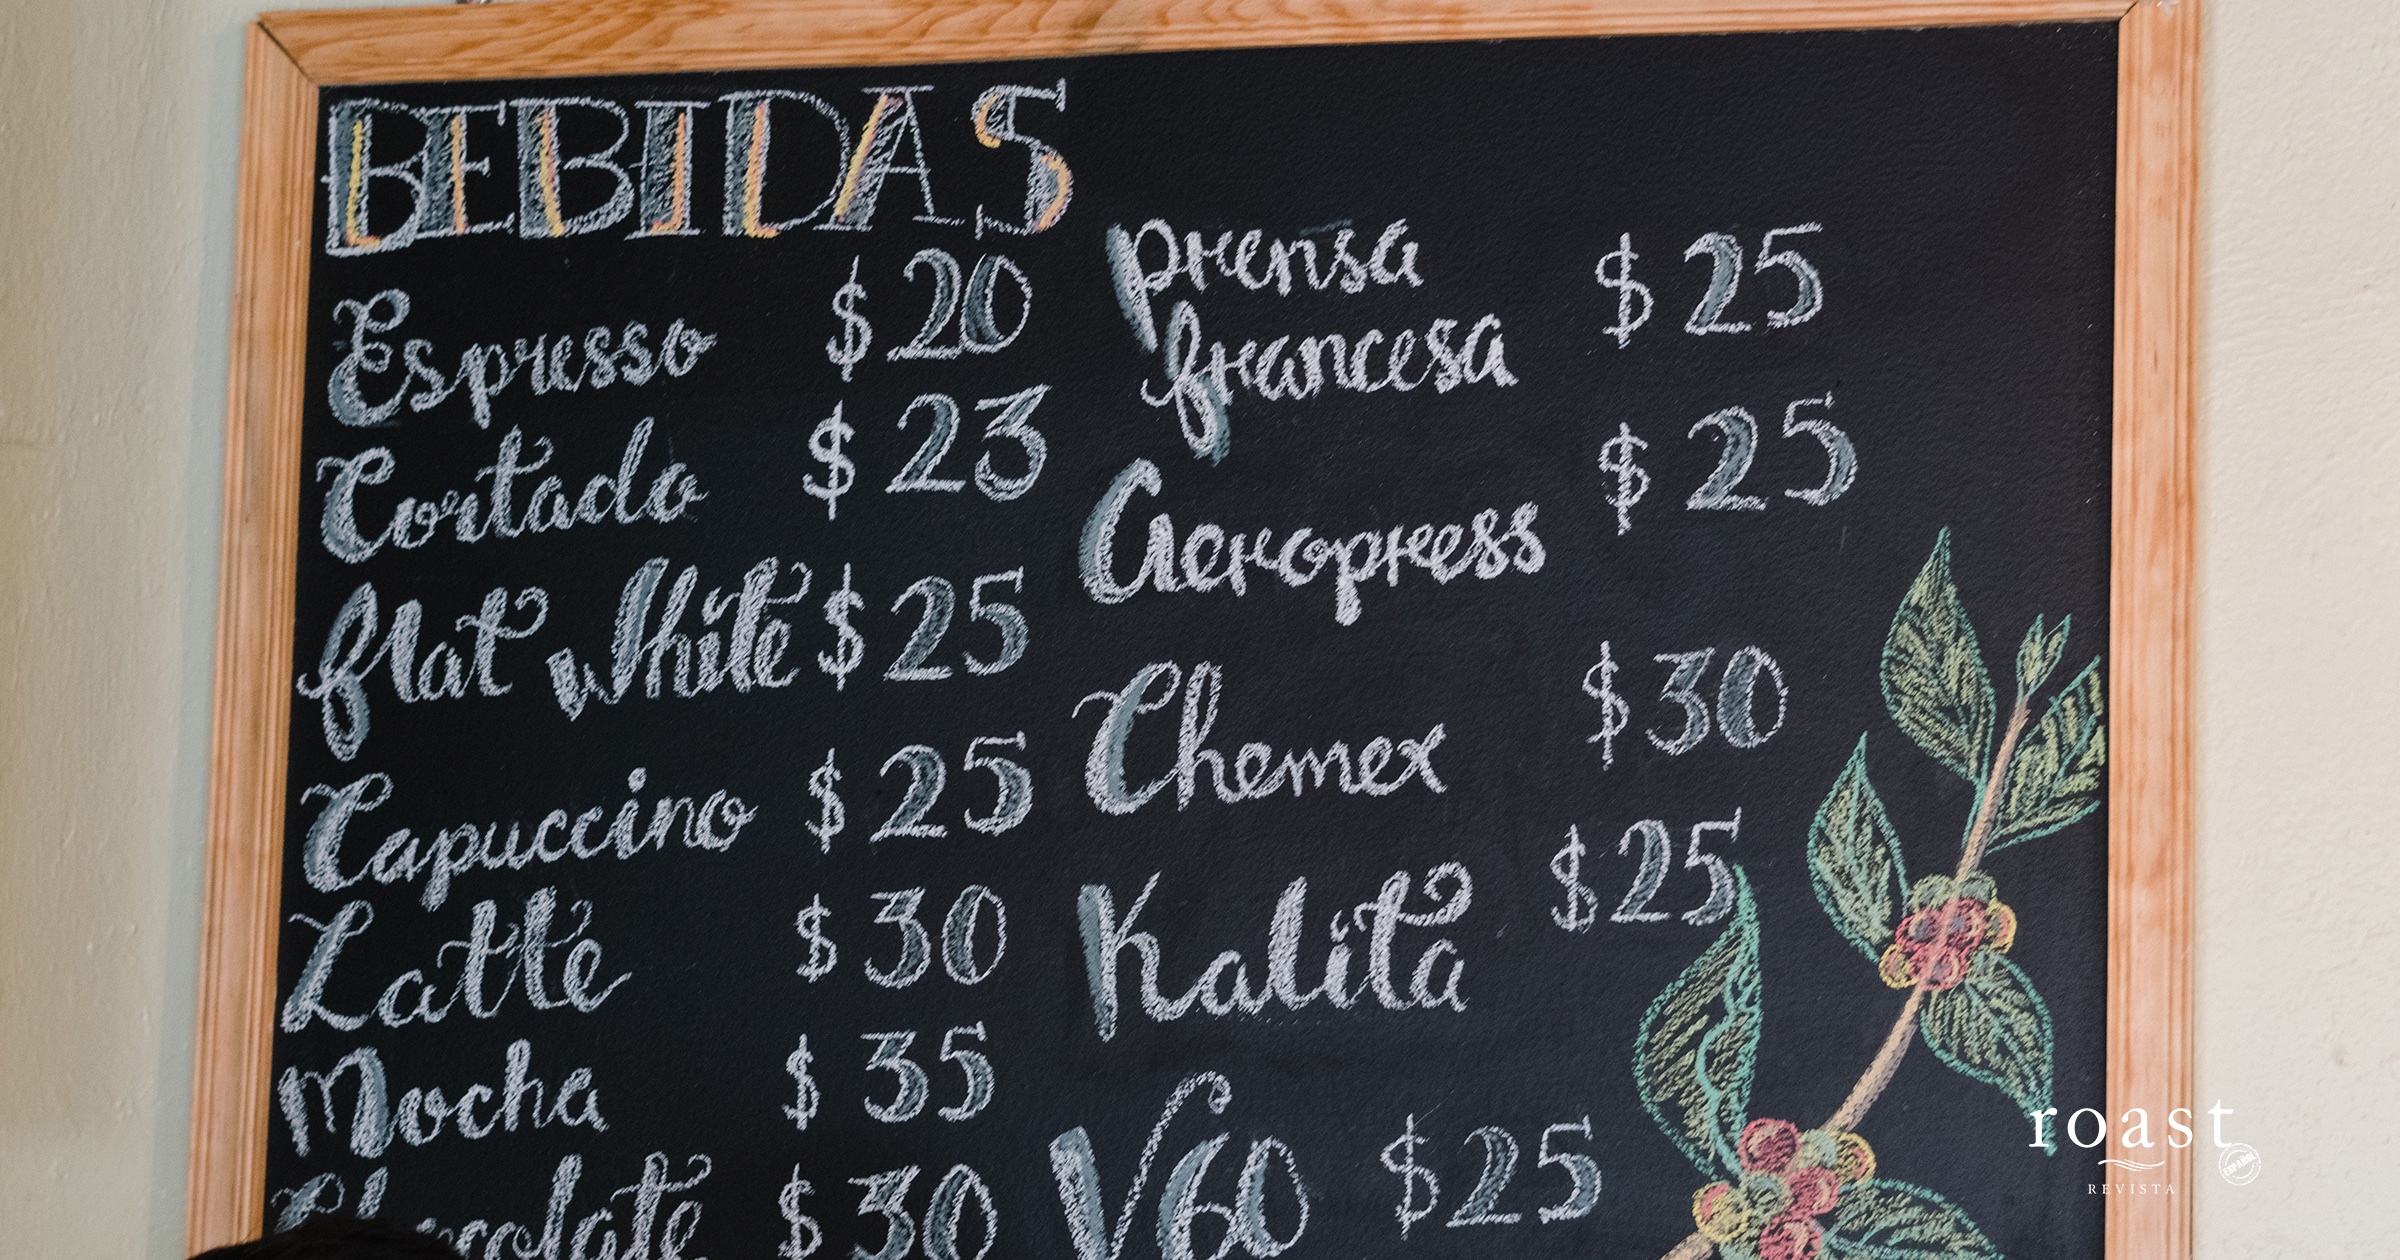 BEBIDAS
Espresso $20
Cortado $23
flat white $25
Capuccino $25
Latte $30
Mocha $35
Chocolate $30
prensa
francesa $25
Aeropress $25
Chemex $30
Kalita $25
V60 $25
roast
ESPAÑOL
REVISTA